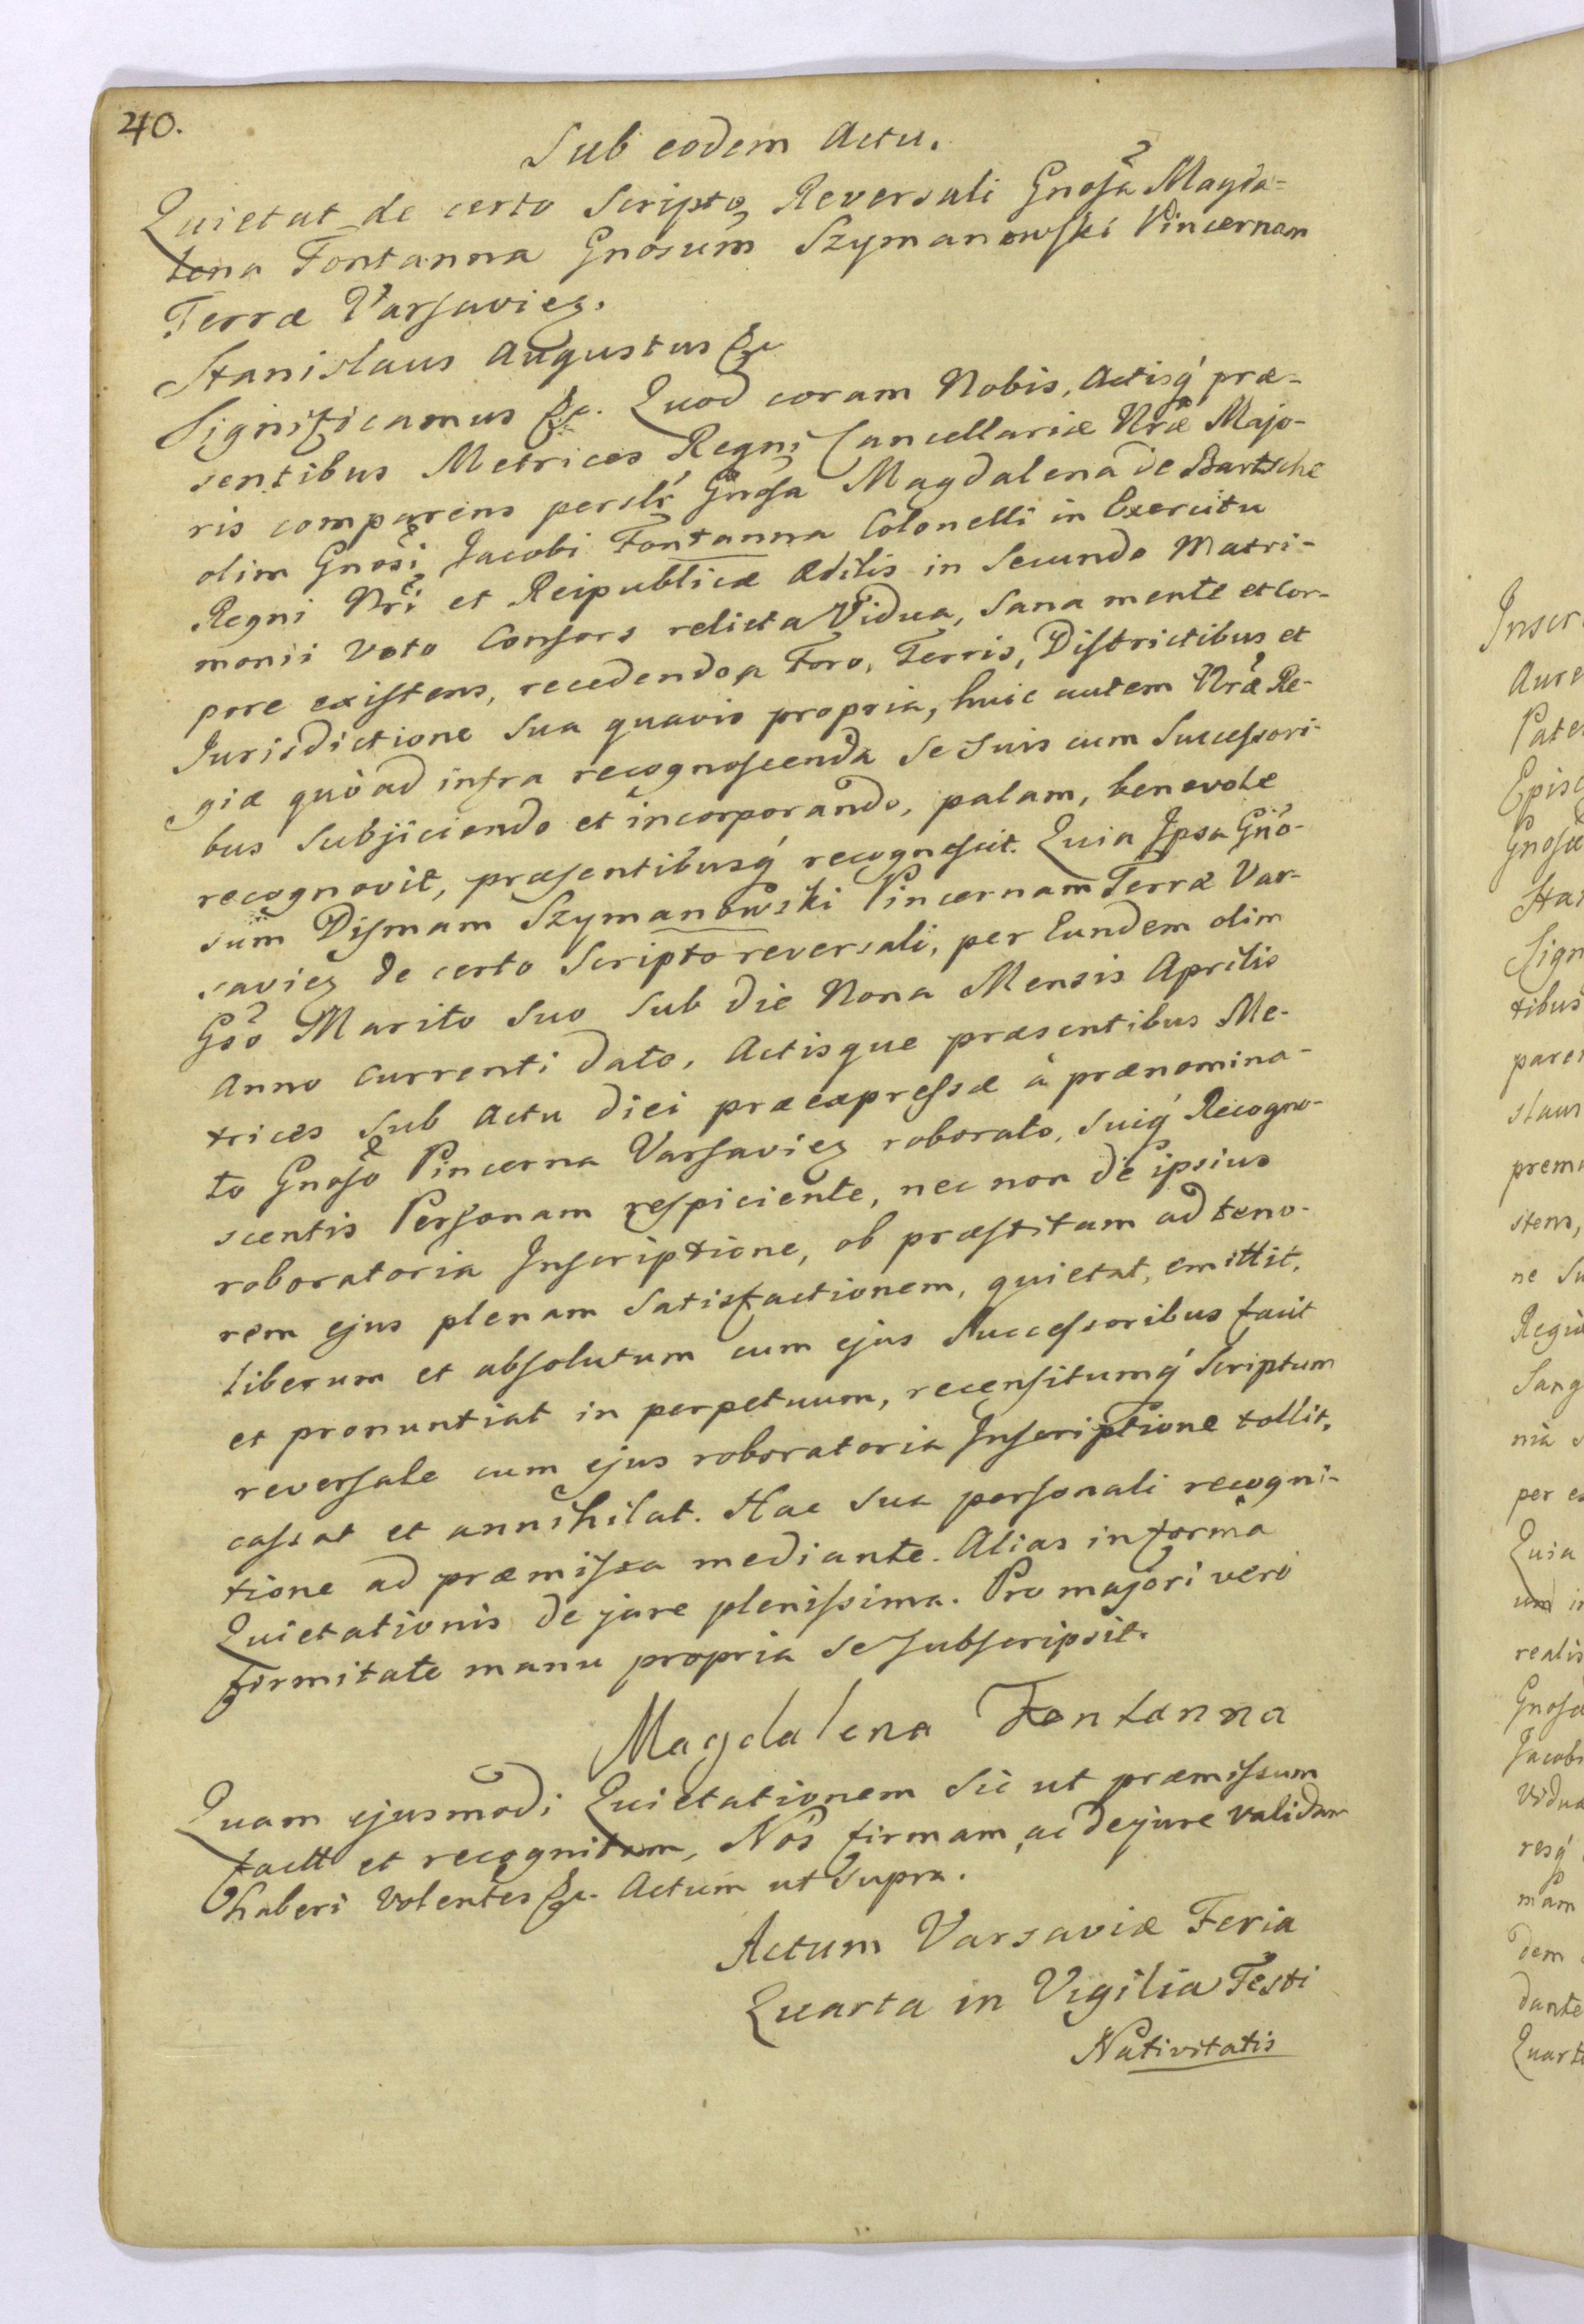 40.
Sub eodem Actu.
Quietat de certo Scripto Reversali Gnosa Magda-
lena Fontanna Gnosum Szymanowski Pincernam
Terræ Varsavieg.
Stanislaus Augustus &c
Significamus &c. Quod coram Nobis, Actisq́ præ-
sentibus Metrices Regni Cancellariæ Nræ Majo-
ris comparens perslr Gnosa Magdalena de Bartsche
olim Gnosi Jacobi Fontanna Colonelli in Exercitu
Regni Nri et Reipublicæ Ædilis in Secundo Matri-
monii voto Consors relicta Vidua, Sana mente et Cor-
pore existens, recedendo a Foro, Terris, Districtibus et
Jurisdictione Sua quavis propria, huic autem Nræ Re-
giæ quò ad infra recognoscenda Se Suis cum Successori-
bus Subjiciendo et incorporando, palam, benevole
recognovit, præsentibusq́ recognoscit. Quia Ipsa Gno-
sum Dismam Szymanowski Pincernam Terræ Var-
savieg de certo Scripto reversali, per Eundem olim
Gso Marito Suo Sub die Nona Mensis Aprilis
Anno Currenti dato, Actisque præsentibus Me-
trices Sub Actu diei præexpressæ à prænomina-
to Gnoso Pincerna Varsavieg roborato, Suiq́ Recogno-
scentis Personam respiciente, nec non de ipsius
roboratoria Inscriptione, ob præstitam ad teno-
rem ejus plenam Satisfactionem, quietat, emittit,
liberum et absolutum cum ejus Successoribus facit
et pronuntiat in perpetuum, recensitumq́ Scriptum
reversale cum ejus roboratoria Inscriptione tollit,
cassat et annihilat. Hac Sua personali recogni-
tione ad præmissa mediante. Alias in forma
Quietationis de jure plenissima. Pro majori vero
firmitate manu propria Se Subscripsit.
Magdalena Fontanna
Quam ejusmodi Quietationem Sic ut præmissum
factt et recognitam, Nos firmam ac de jure validam
haberi volentes &c. Actum ut Supra.
Actum Varsaviæ Feria
Quarta in Vigilia Festi
Nativitatis
Inscr
Aure
Pate
Episc
Gnosæ
Sta
Sign
tibus
pare
slau
prem
stens,
ne Su
Regiæ
Sang
nia
per e
Quia
um i
realis
Gnosa
Jacobi
Vidua
resq́
mam
dem
dante
Quart